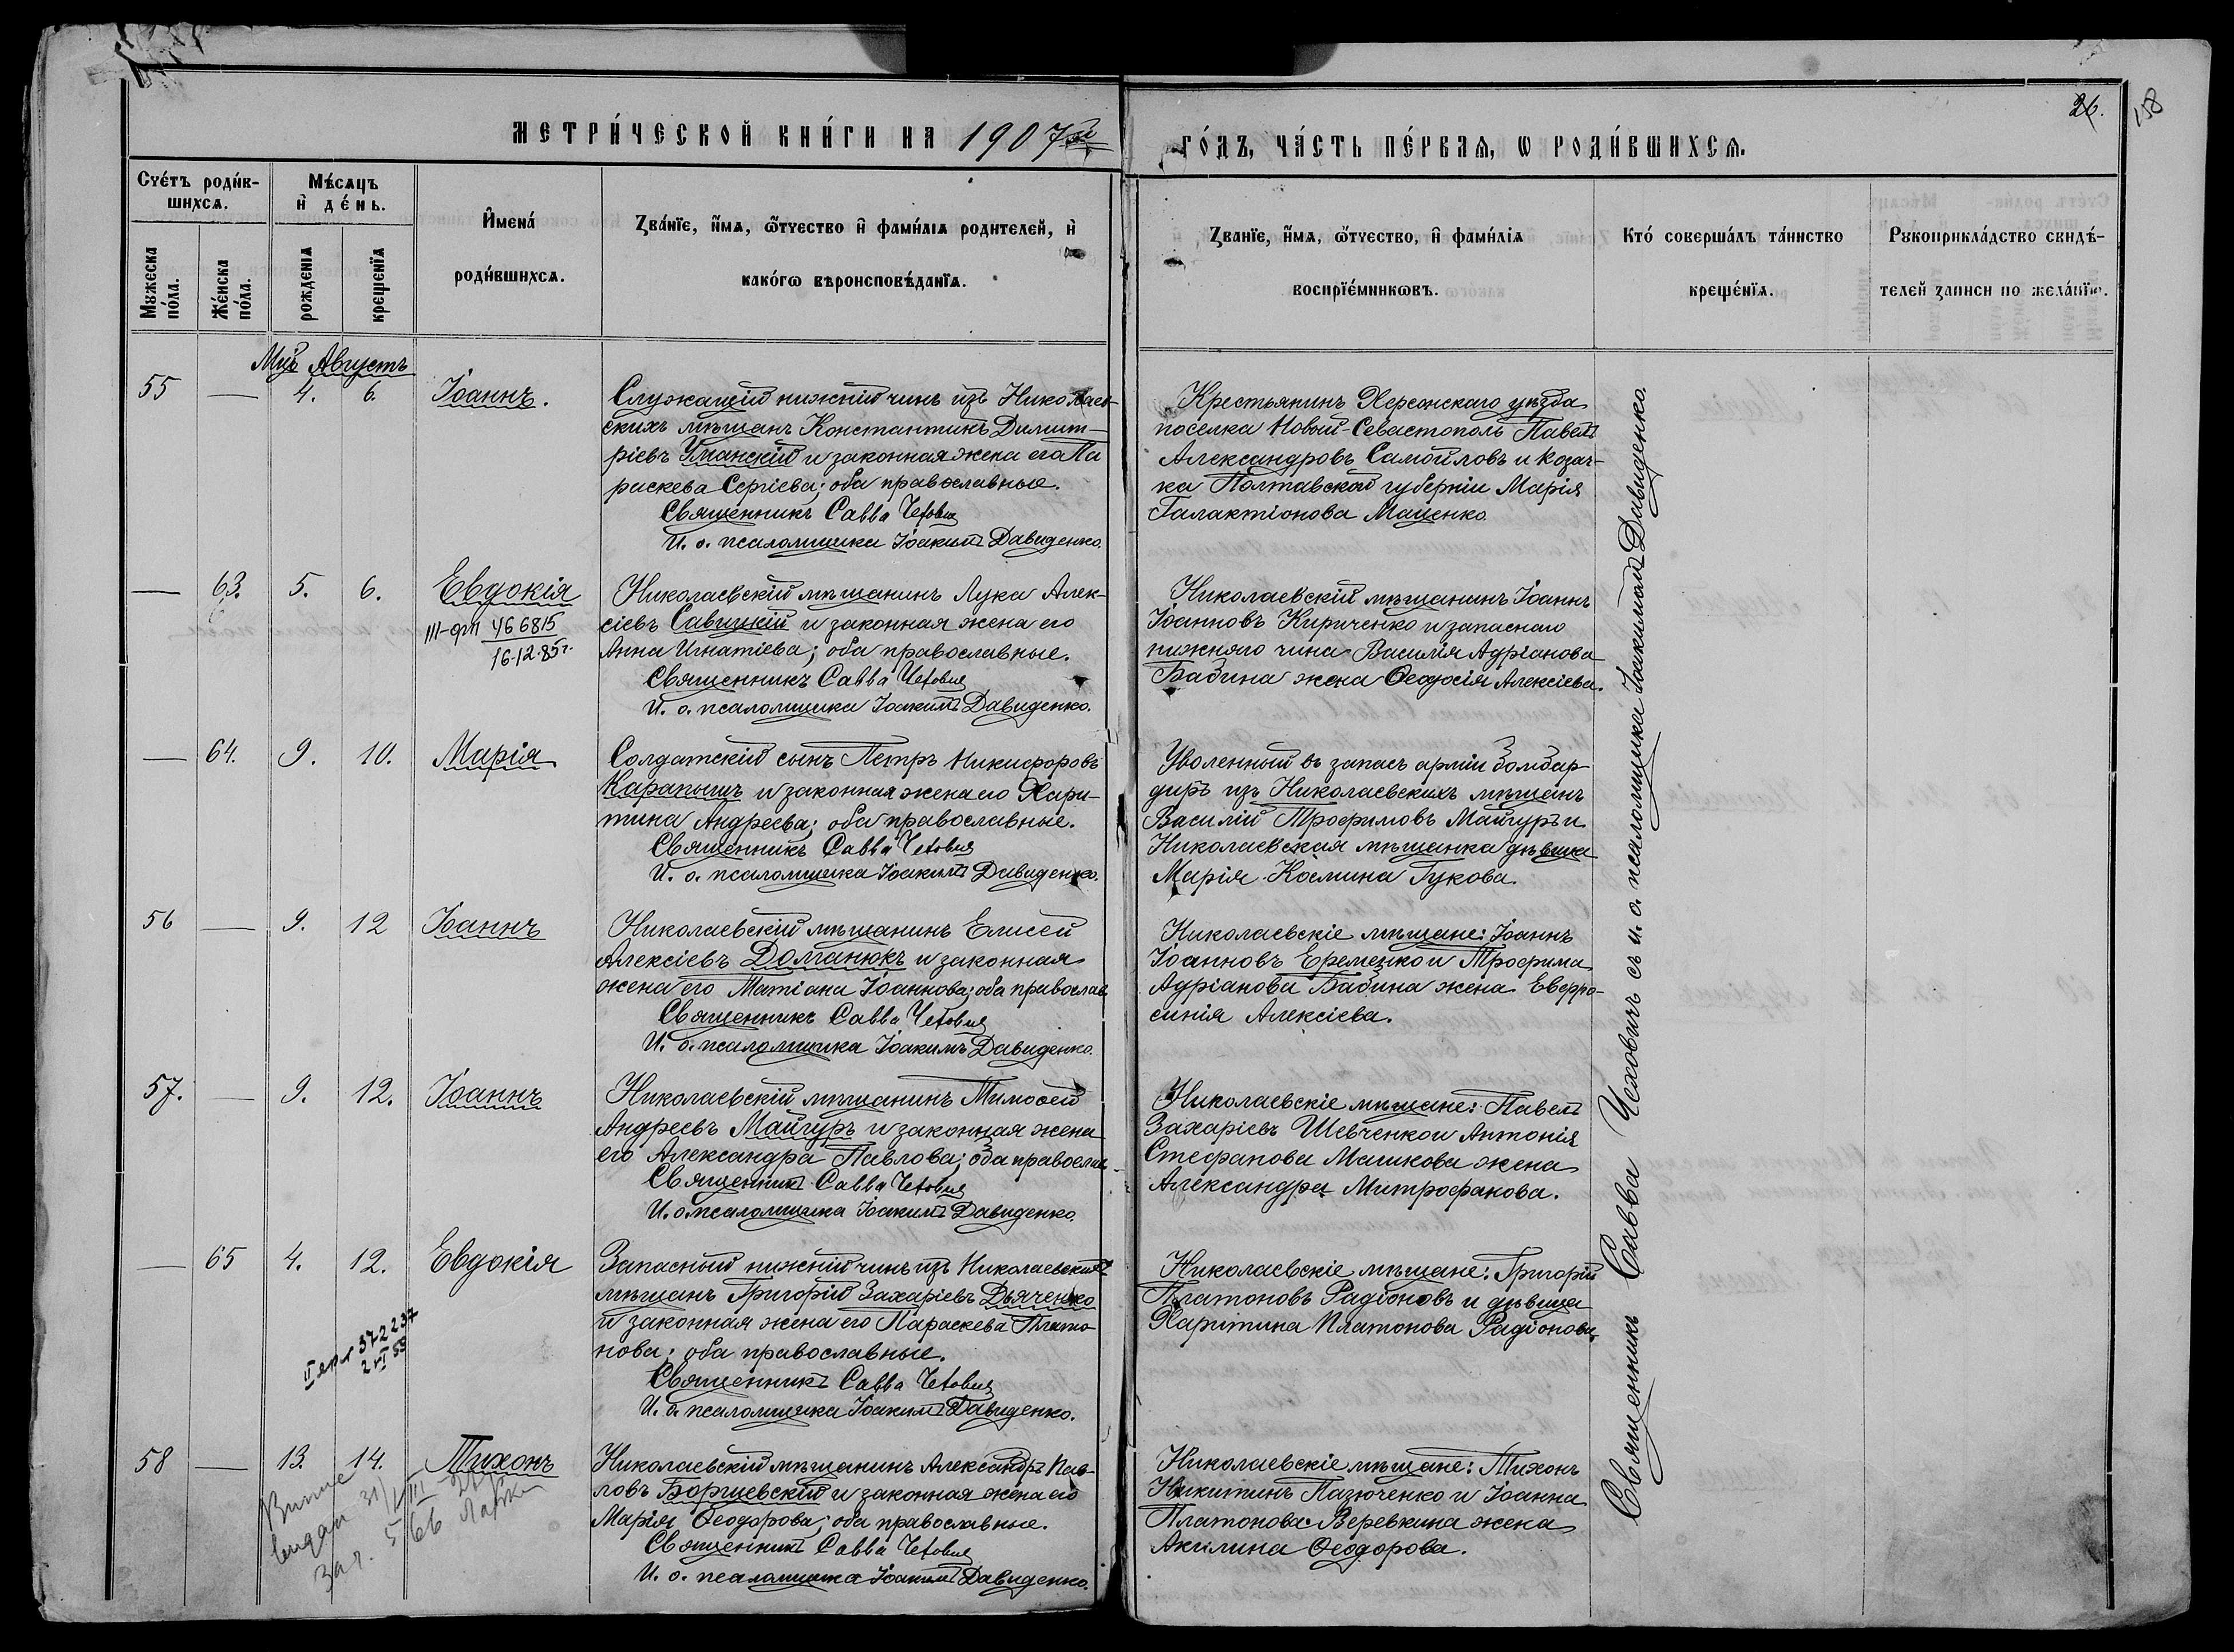 МЕТРИ́ЧЕСКОЙ КНИ́ГИ НА 1907й
ГО́ДЪ, ЧА́СТЬ ПЕ́РВАѦ, Ѡ РОДИ́ВШИХСѦ.
26.
158
Сче́тъ роди́вшихсѧ.
Мꙋжеска по́ла.
Же́нска по́ла.
Мѣ́сѧцъ и҆ де́нь.
рожденїѧ
крещенїѧ
И҆мена́ роди́вшихсѧ.
Зва́нїе, и҆́мѧ, ѻ҆́тчество и҆ фами́лїѧ родителей, и҆ како́гѡ вѣроисповѣ́данїѧ.
Званїе, и҆́мѧ, ѻ҆́тчество, и҆ фами́лїѧ воспрїе́мникѡвъ.
Кто́ соверша́лъ та́инство креще́нїѧ.
Рꙋкоприкла́дство свидѣ́телей записи по жела́нїю.
Мцъ Августъ
55 — 4. 6. Іоаннъ.
Служащій нижній чинъ изъ Николаев-
скихъ мѣщанъ Константинъ Димит-
ріевъ Уманскій и законная жена его Па
раскева Сергіева; оба православные.
Священникъ Савва Чехович
И. о. псаломщика Іоакимъ Давиденко.
Крестьянинъ Херсонскаго уѣзда
поселка Новый-Севастополь Павелъ
Александровъ Самойловъ и козач-
ка Полтавской губерніи Марія
Галактіонова Маценко.
— 63. 5. 6. Евдокія
III-ФП 466815
16.12.85г.
Николаевскій мѣщанинъ Лука Алек-
сіевъ Савицкій и законная жена его
Анна Игнатіева; оба православные.
Священникъ Савва Чехович
И. о. псаломщика Іоакимъ Давиденко.
Николаевскій мѣщанинъ Іоаннъ
Іоанновъ Кириченко и запаснаго
нижняго чина Василія Адріанова
Бабина жена Ѳеодосія Алексіева.
— 64. 9. 10. Марія
Солдатскій сынъ Петръ Никифоровъ
Карапышъ и законная жена его Хари-
тина Андреева; оба православные.
Священникъ Савва Чехович
И. о. псаломщика Іоакимъ Давиденко.
Уволенный въ запасъ арміи бомбар-
диръ изъ Николаевскихъ мѣщанъ
Василій Трофимовъ Майгуръ и
Николаевская мѣщанка дѣвица
Марія Космина Гукова.
56 — 9. 12 Іоаннъ
Николаевскій мѣщанинъ Елисей
Алексіевъ Долганюкъ и законная
жена его Татіана Іоаннова; оба православ.
Священникъ Савва Чехович
И. о. псаломщика Іоакимъ Давиденко.
Николаевскіе мѣщане: Іоаннъ
Іоанновъ Еременко и Трофима
Адріанова Бабина жена Евфро-
синія Алексіева.
57. — 9. 12. Іоаннъ
Николаевскій мѣщанинъ Тимоѳей
Андреевъ Майгуръ и законная жена
его Александра Павлова; оба православ
Священникъ Савва Чехович
И. о. псаломщика Іоакимъ Давиденко.
Николаевскіе мѣщане: Павелъ
Захаріевъ Шевченко и Антонія
Стефанова Машкова жена
Александра Митрофанова.
— 65 4. 12. Евдокія
372237
Запасный нижній чинъ изъ Николаевскихъ
мѣщанъ Григорій Захаріевъ Дьяченко
и законная жена его Параскева Плато-
нова; оба православные.
Священникъ Савва Чехович
И. о. псаломщика Іоакимъ Давиденко.
Николаевскіе мѣщане: Григорій
Платоновъ Радіоновъ и дѣвица
Харитина Платонова Радіонова.
58 — 13. 14. Тихонъ
Николаевскій мѣщанинъ Александръ Пав-
ловъ Боршевскій и законная жена его
Марія Ѳеодорова; оба православные.
Священникъ Савва Чехович
И. о. псаломщика Іоакимъ Давиденко.
Николаевскіе мѣщане: Тихонъ
Никитинъ Пазюченко и Іоанна
Платонова Веревкина жена
Акилина Ѳеодорова.
Священникъ Савва Чеховичъ съ и. о. псаломщика Іоакимомъ Давиденко.